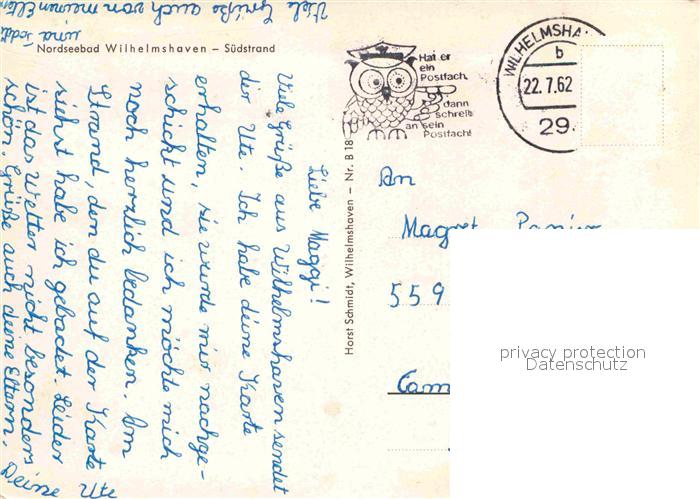 Nordseebad Wilhelmshaven – Südstrand
Liebe Maggi!
Viele Grüße aus Wilhelmshaven sendet
dir Ute. Ich habe deine Karte
erhalten, sie wurde mir nachge-
schickt und ich möchte mich
noch herzlich bedanken. Am
Strand, den du auf der Karte
siehst habe ich gebadet. Leider
ist das Wetter nicht besonders
schön. Grüße auch deine Eltern.
Deine Ute
Viele Grüße auch von meinen Eltern
und
Horst Schmidt, Wilhelmshaven – Nr. B 18
Hat er
ein
Postfach,
dann
schreib
an sein
Postfach!
WILHELMSHA
b
22.7.62
29.
An
Magret
559
Cam
privacy protection
Datenschutz